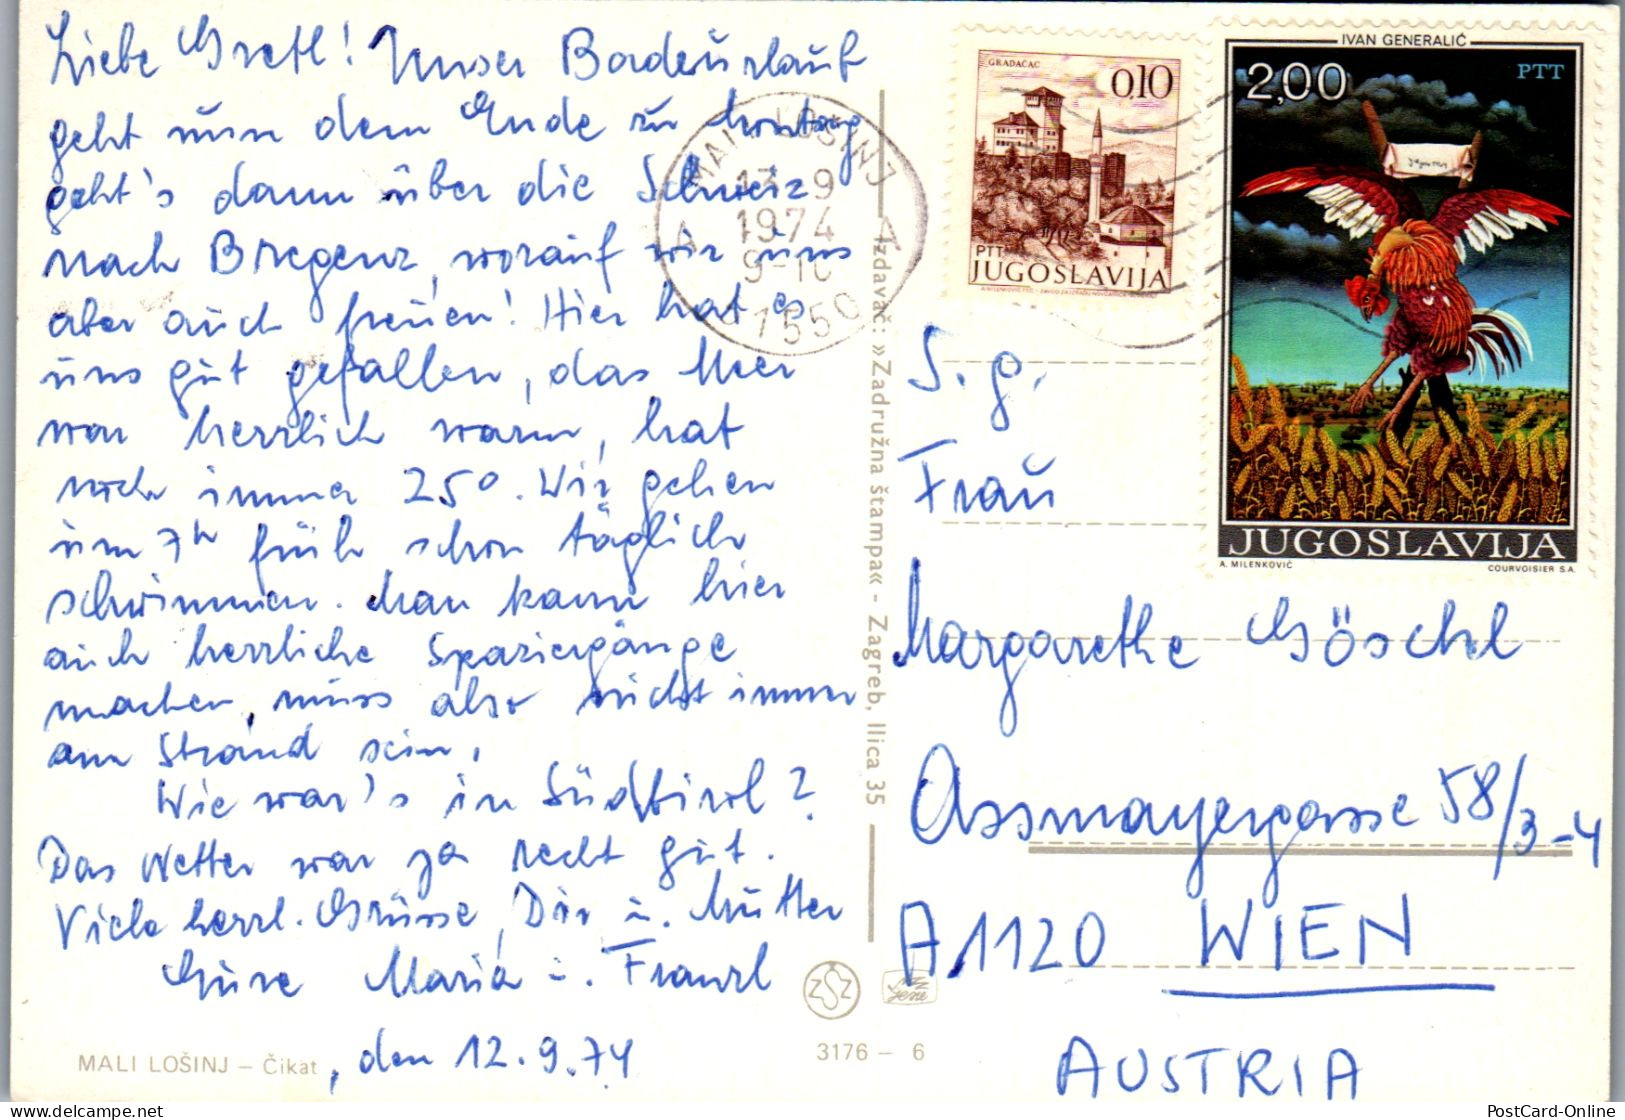 Liebe Gretl! Unser Badeurlaub
geht nun dem Ende zu Montag
geht's dann über die Schweiz
nach Bregenz, worauf wir uns
aber auch freuen! Hier hat es
uns gut gefallen, das Meer
war herrlich warm, hat
noch immer 25°. Wir gehen
um 7h früh schon täglich
schwimmen. Man kann hier
auch herrliche Spaziergänge
machen, muss also nicht immer
am Strand sein.
Wie war's in Südtirol?
Das Wetter war ja recht gut.
Viele herzl. Grüsse, Dir u. Mutter
Eure Maria u. Franzl
MALI LOŠINJ – Čikat, den 12.9.74
MALI LOŠINJ
9
1974
9-10
A
51550
Izdavač: »Zadružna štampa« - Zagreb, Ilica 35
ZSZ
3176 – 6
GRADAČAC
0,10
PTT
JUGOSLAVIJA
IVAN GENERALIĆ
2,00
PTT
JUGOSLAVIJA
A. MILENKOVIĆ
COURVOISIER S.A.
S. g.
Frau
Margarethe Göschl
Assmayergasse 58/3-4
A 1120 WIEN
AUSTRIA
PostCard-Online
the-postcard-shop - delcampe.net